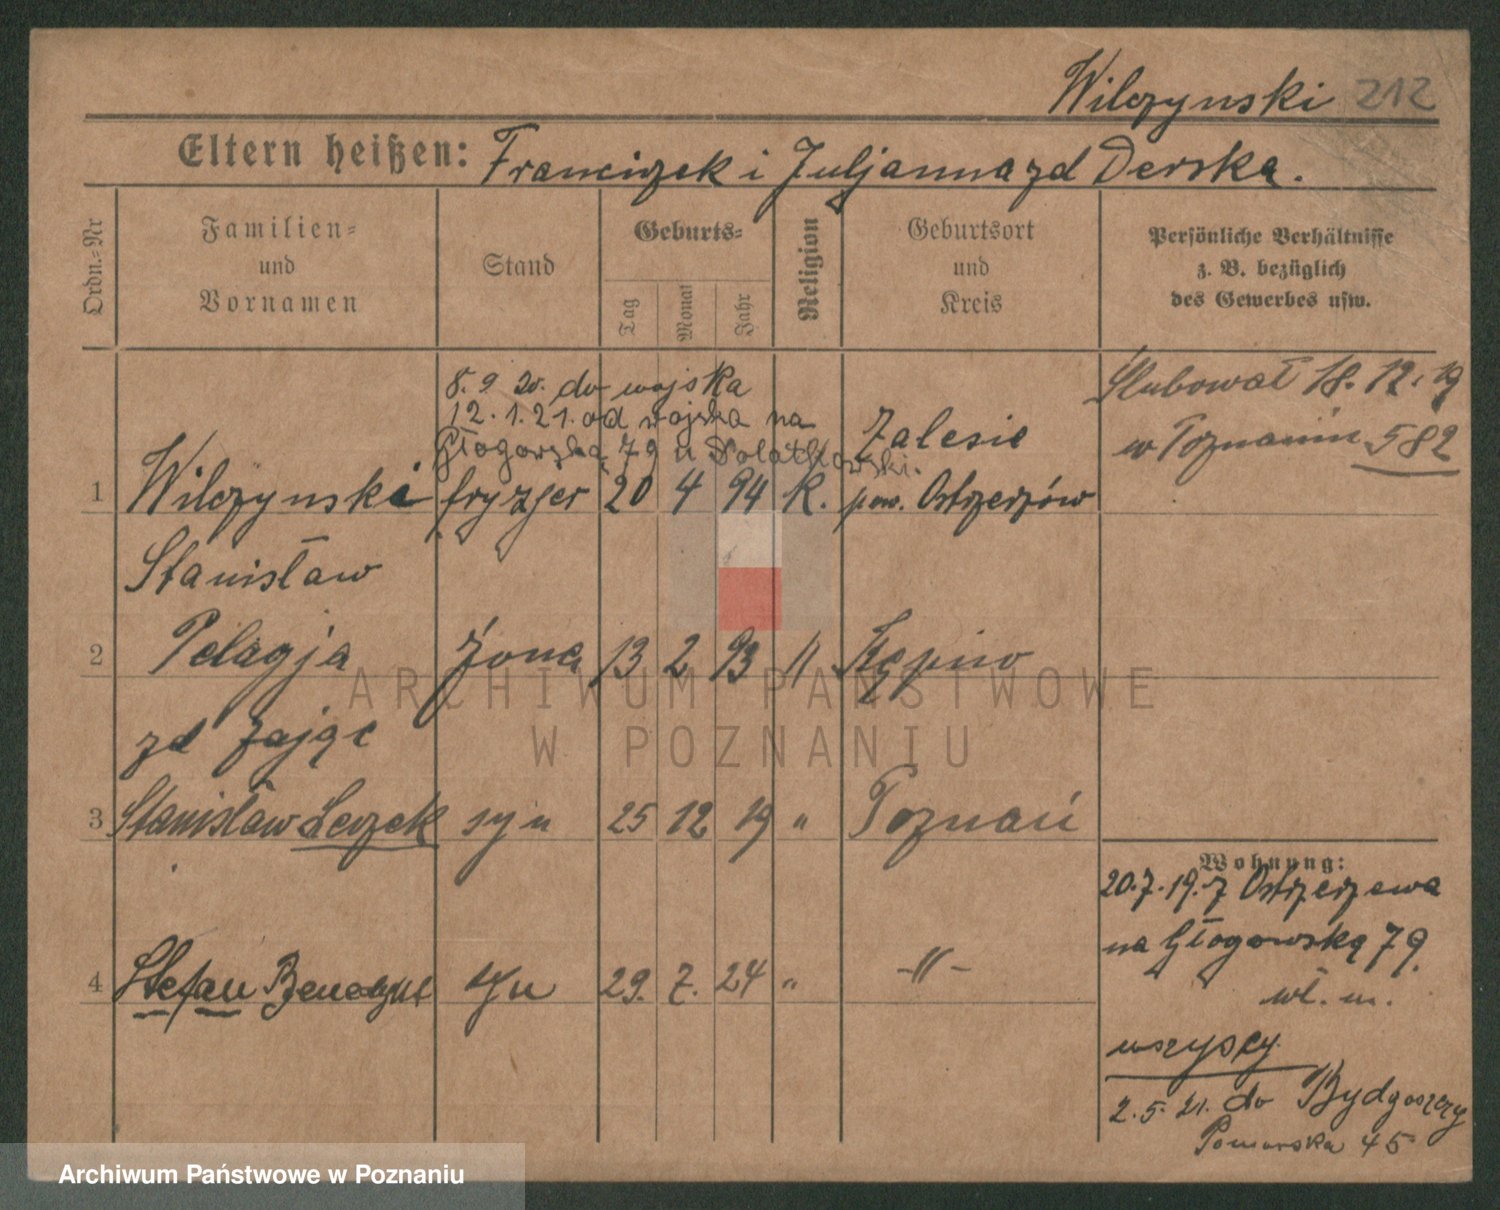 Wilczynski 212
Eltern heißen: Franciszek i Juljanna zd Derska.
Ordn.-Nr
Familien-
und
Vornamen
Stand
Geburts-
Tag
Monat
Jahr
Religion
Geburtsort
und
Kreis
Persönliche Verhältnisse
z. B. bezüglich
des Gewerbes usw.
8. 9 20. do wojska
12. 1. 21. od wojska na
Głogowską 79 u
1 Wilczynski fryzjer 20 4 94 K. Zalesie
pow. Ostrzeszów
Stanisław
Ślubował 18. 12. 19
w Poznaniu 582
2 Pelagja żona 13 2 93 " Kępno
zd Zając
3 Stanisław Leszek syn 25 12 19 " Poznań
4 Stefan syn 29. 7. 24 " -"-
Wohnung:
20. 7. 19. z Ostrzeszowa
na Głogowską 79.
wł. m.
wszyscy
2. 5. 21. do Bydgoszczy
Pomorska 45
ARCHIWUM PAŃSTWOWE
W POZNANIU
Archiwum Państwowe w Poznaniu